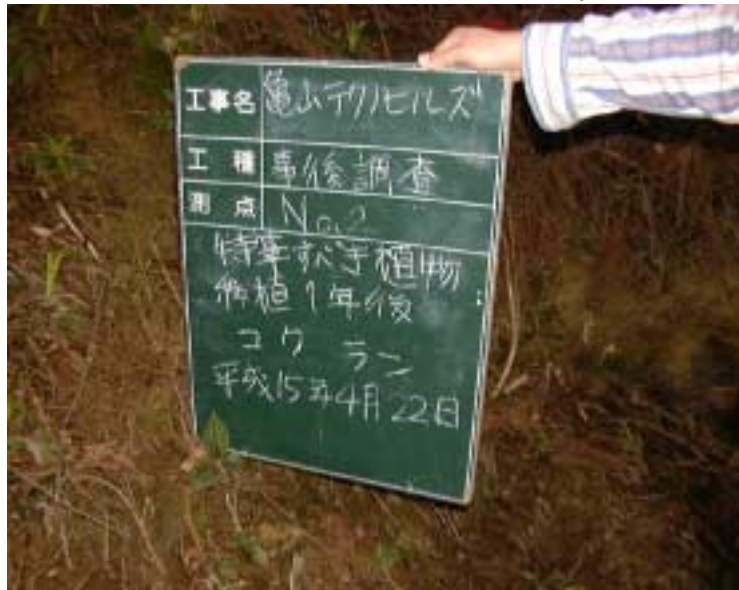 工事名 亀山テクノヒルズ
工種 事後調査
測点 No.2
特筆すべき植物
移植1年後
コクラン
平成15年4月22日